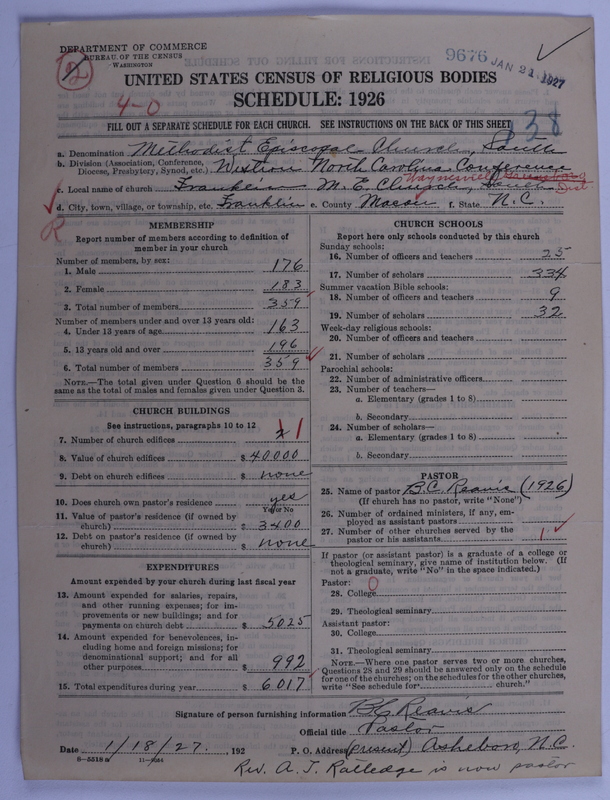 DEPARTMENT OF COMMERCE
BUREAU OF THE CENSUS
WASHINGTON
9676
JAN 21 1927
12
4-0
UNITED STATES CENSUS OF RELIGIOUS BODIES
SCHEDULE: 1926
FILL OUT A SEPARATE SCHEDULE FOR EACH CHURCH. SEE INSTRUCTIONS ON THE BACK OF THIS SHEET
838
a. Denomination Methodist Episcopal Church, South
b. Division (Association, Conference, Diocese, Presbytery, Synod, etc.) Western North Carolina Conference
Waynesville Dist
c. Local name of church Franklin M. E. Church, South
d. City, town, village, or township, etc. Franklin e. County Macon f. State N.C.
R
MEMBERSHIP
Report number of members according to definition of member in your church
Number of members, by sex:
1. Male 176
2. Female 183
3. Total number of members 359
Number of members under and over 13 years old:
4. Under 13 years of age 163
5. 13 years old and over 196
6. Total number of members 359
NOTE.—The total given under Question 6 should be the same as the total of males and females given under Question 3.
CHURCH BUILDINGS
See instructions, paragraphs 10 to 12
7. Number of church edifices 1
8. Value of church edifices $ 40000
9. Debt on church edifices $ none
10. Does church own pastor's residence yes
Yes or No
11. Value of pastor's residence (if owned by church) $ 3400
12. Debt on pastor's residence (if owned by church) $ none
EXPENDITURES
Amount expended by your church during last fiscal year
13. Amount expended for salaries, repairs, and other running expenses; for improvements or new buildings; and for payments on church debt $ 5025
14. Amount expended for benevolences, including home and foreign missions; for denominational support; and for all other purposes $ 992
15. Total expenditures during year $ 6017
CHURCH SCHOOLS
Report here only schools conducted by this church
Sunday schools:
16. Number of officers and teachers 25
17. Number of scholars 334
Summer vacation Bible schools:
18. Number of officers and teachers 9
19. Number of scholars 32
Week-day religious schools:
20. Number of officers and teachers
21. Number of scholars
Parochial schools:
22. Number of administrative officers
23. Number of teachers—
a. Elementary (grades 1 to 8)
b. Secondary
24. Number of scholars—
a. Elementary (grades 1 to 8)
b. Secondary
PASTOR
25. Name of pastor B.C. Reavis (1926)
(If church has no pastor, write "None")
26. Number of ordained ministers, if any, employed as assistant pastors
27. Number of other churches served by the pastor or his assistants 1
If pastor (or assistant pastor) is a graduate of a college or theological seminary, give name of institution below. (If not a graduate, write "No" in the space indicated.)
Pastor: 0
28. College
29. Theological seminary
Assistant pastor:
30. College
31. Theological seminary
NOTE.—Where one pastor serves two or more churches, Questions 28 and 29 should be answered only on the schedule for one of the churches; on the schedules for the other churches, write "See schedule for church."
Signature of person furnishing information B.C. Reavis
Official title Pastor
Date 1/18/27, 192 P. O. Address (present) Asheboro, N.C.
8—5518a 11—9264
Rev. A. J. Ratledge is now pastor